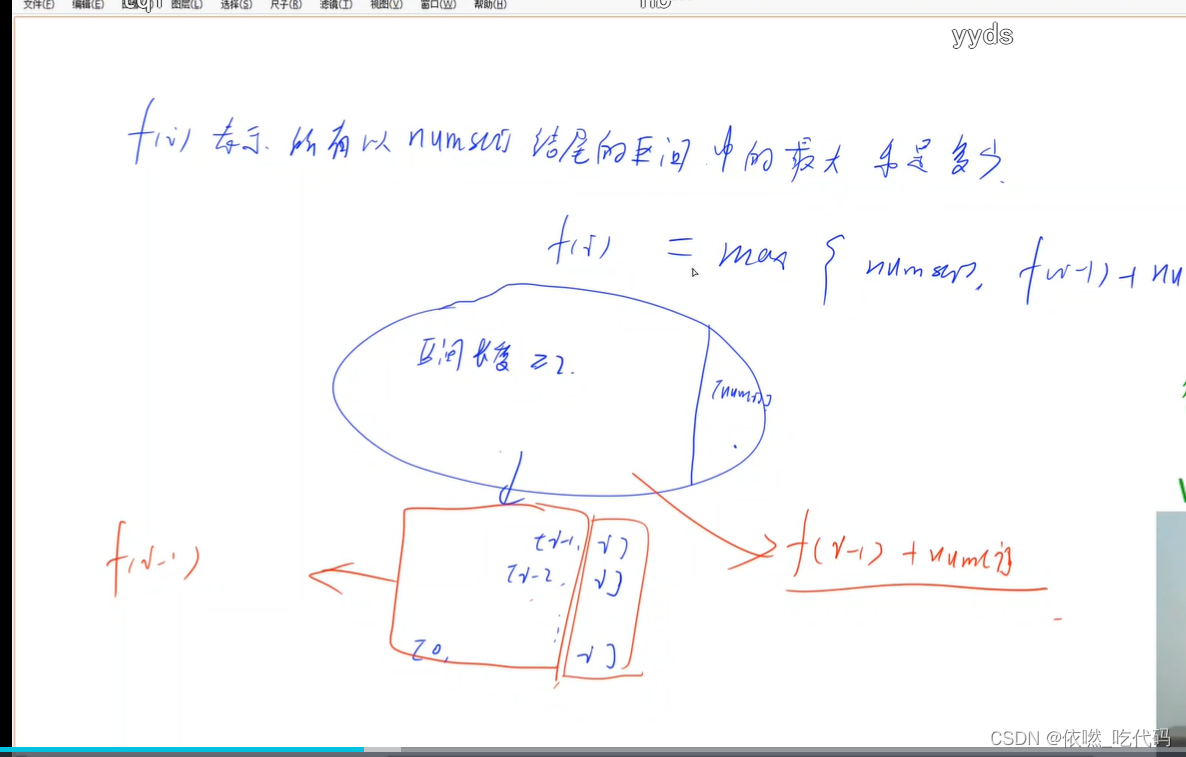 文件(F) 编辑(E) 图层(L) 选择(S) 尺子(R) 滤镜(T) 视图(V) 窗口(W) 帮助(H)
yyds
f(i) 表示 所有以 nums[i] 结尾的区间 中的最大 和是多少.
f(i) = max { nums[i], f(i-1) + nu
区间长度 ≥2.
[nums[i]]
[i-1, i]
[i-2, i]
f(i-1)
f(i-1) + nums[i]
[0, i]
CSDN @依嘫_吃代码